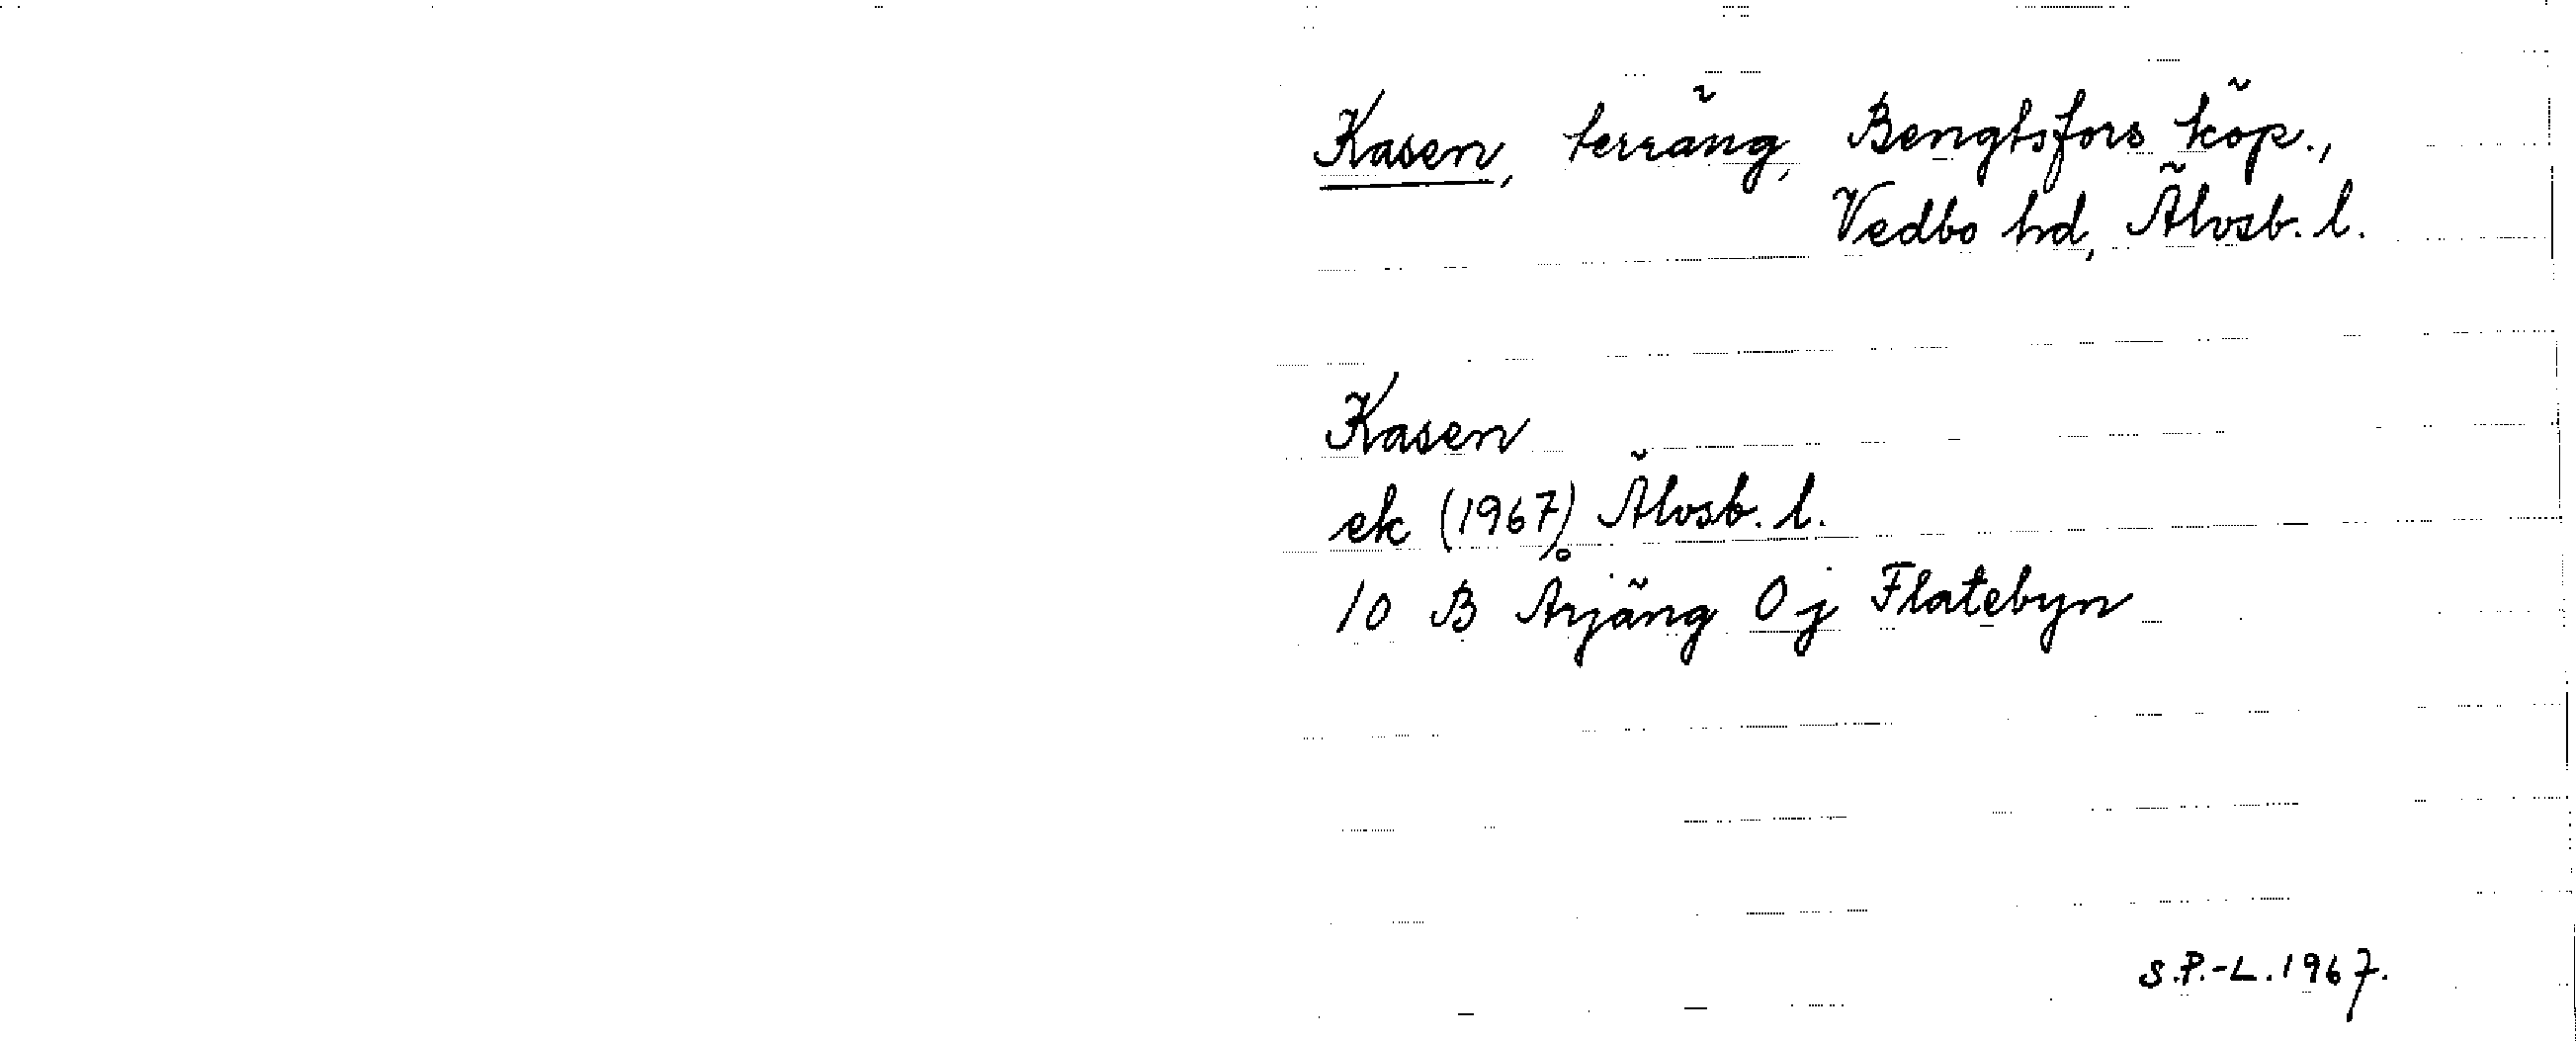 Kasen, terräng, Bengtsfors köp.,
Vedbo hd, Älvsb. l.
Kasen
ek (1967) Älvsb. l.
10 B Årjäng 0 j Flatebyn
S.P.-L. 1967.